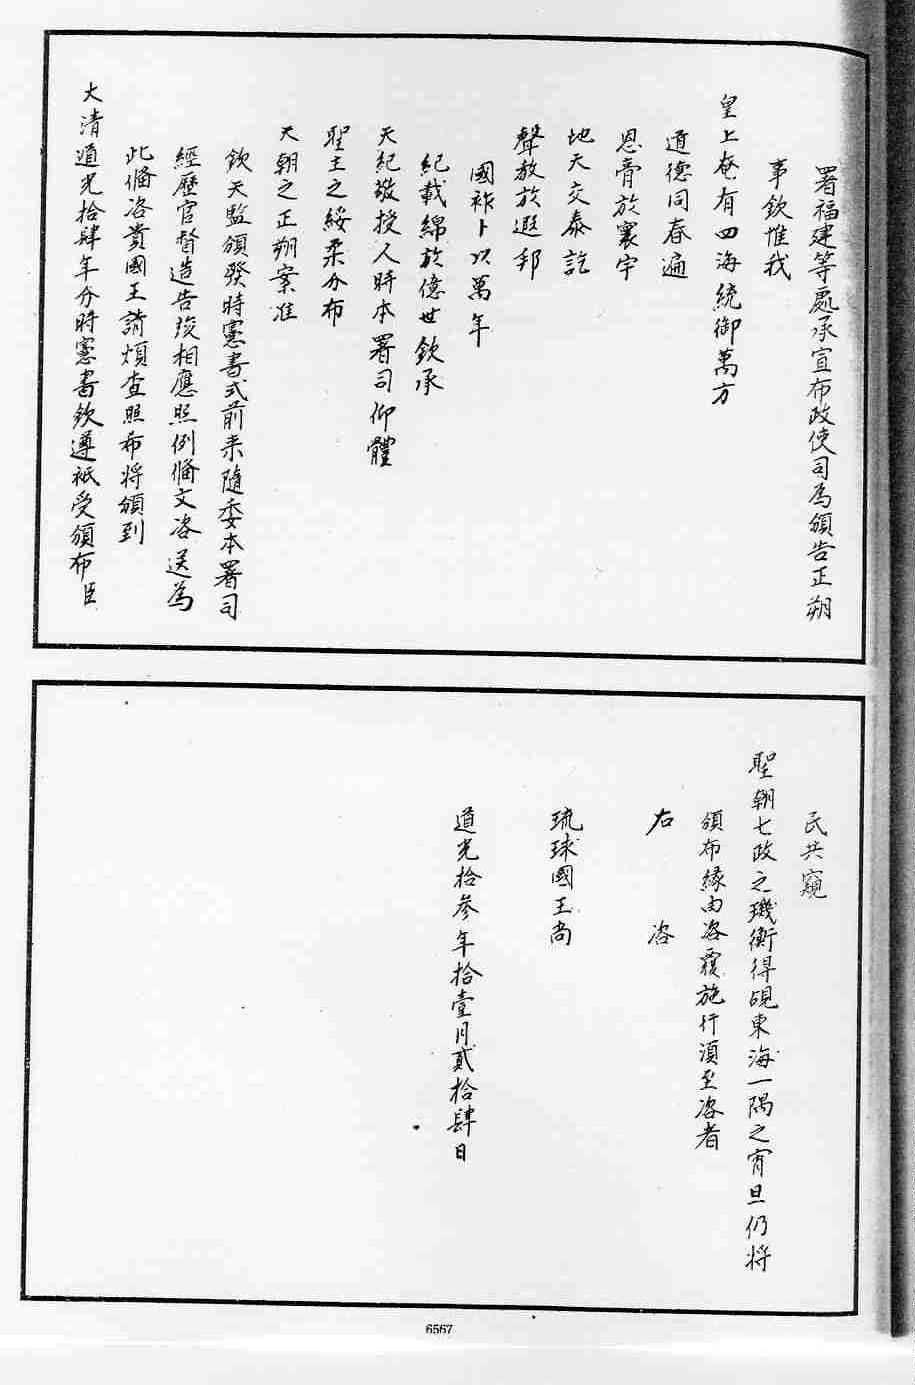 署福建等處承宣布政使司為頒告正朔
事欽惟我
皇上奄有四海統御萬方
道德同春遍
恩膏於寰宇
地天交泰訖
聲教於遐邦
國祚卜以萬年
紀載綿於億世欽承
天紀敬授人時本署司仰體
聖主之綏柔分布
天朝之正朔案准
欽天監頒發時憲書式前來隨委本署司
經歷官督造告竣相應照例偹文咨送為
此偹咨貴國王請煩查照希將頒到
大清道光拾肆年分時憲書欽遵祗受頒布臣
民共窺
聖朝七政之璣衡得覘東海一隅之宵旦仍將
頒布緣由咨覆施行須至咨者
右 咨
琉球國王尚
道光拾參年拾壹月貳拾肆日
6567